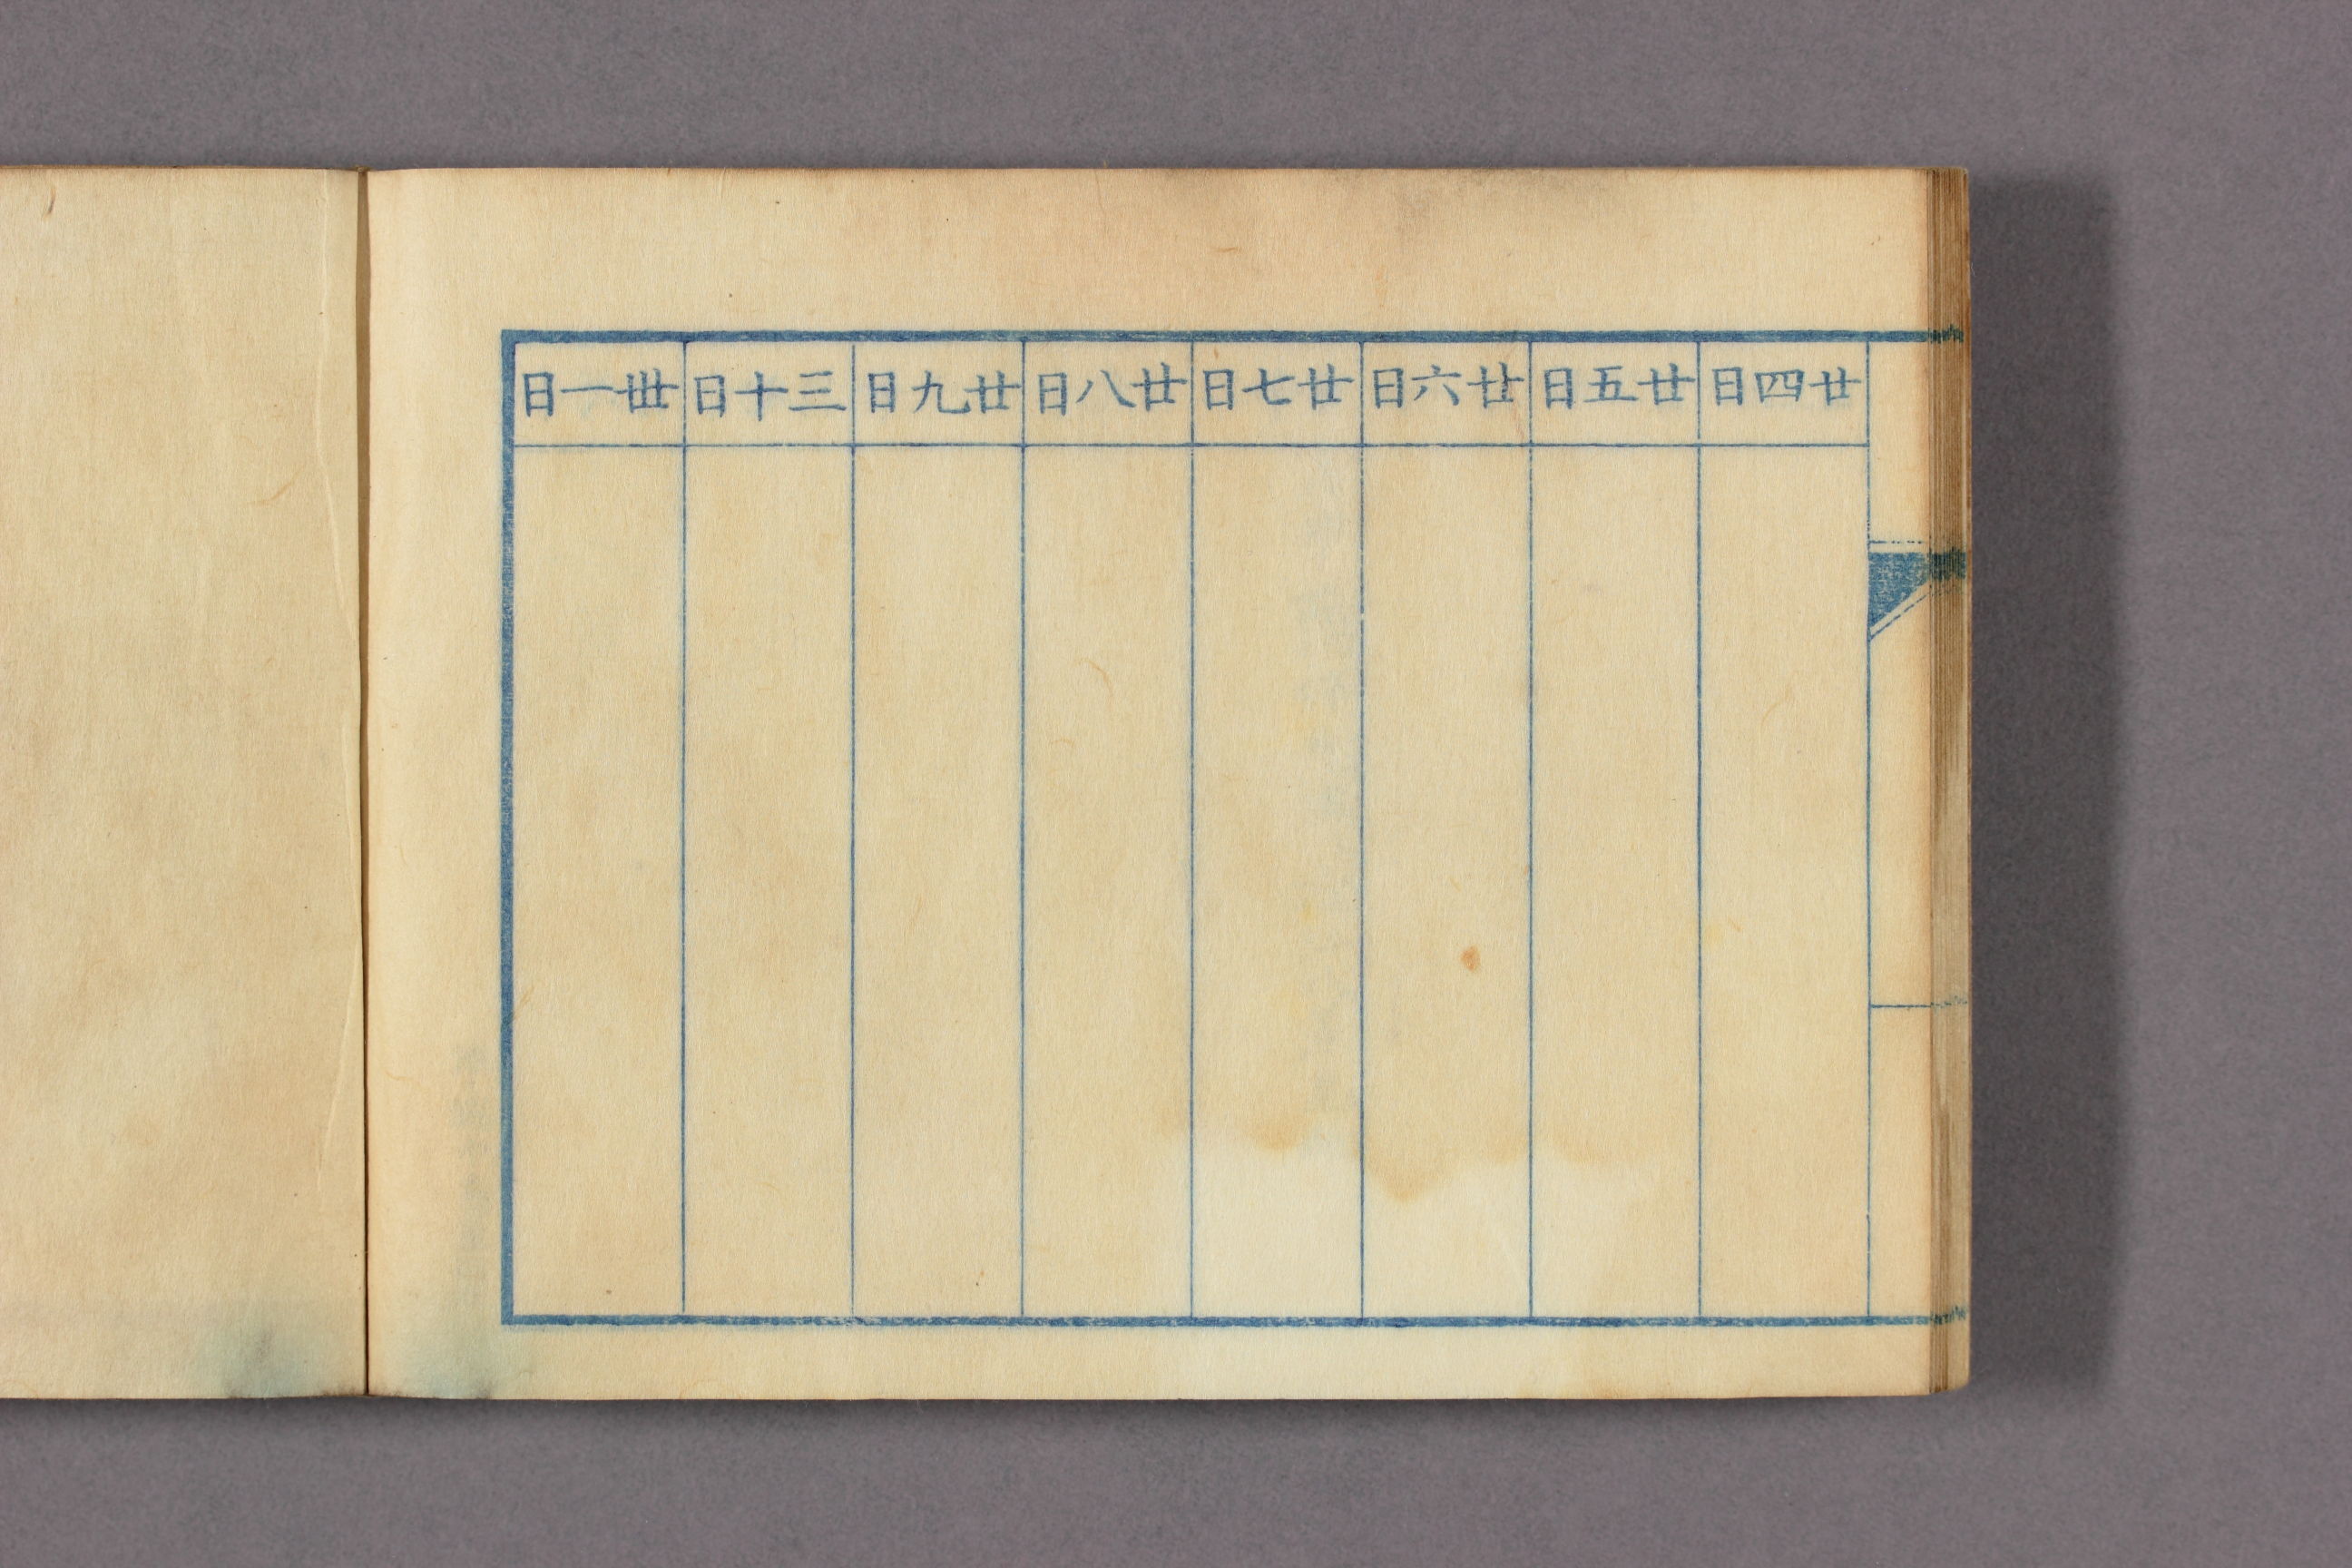 廿四日
廿五日
廿六日
廿七日
廿八日
廿九日
三十日
卅一日